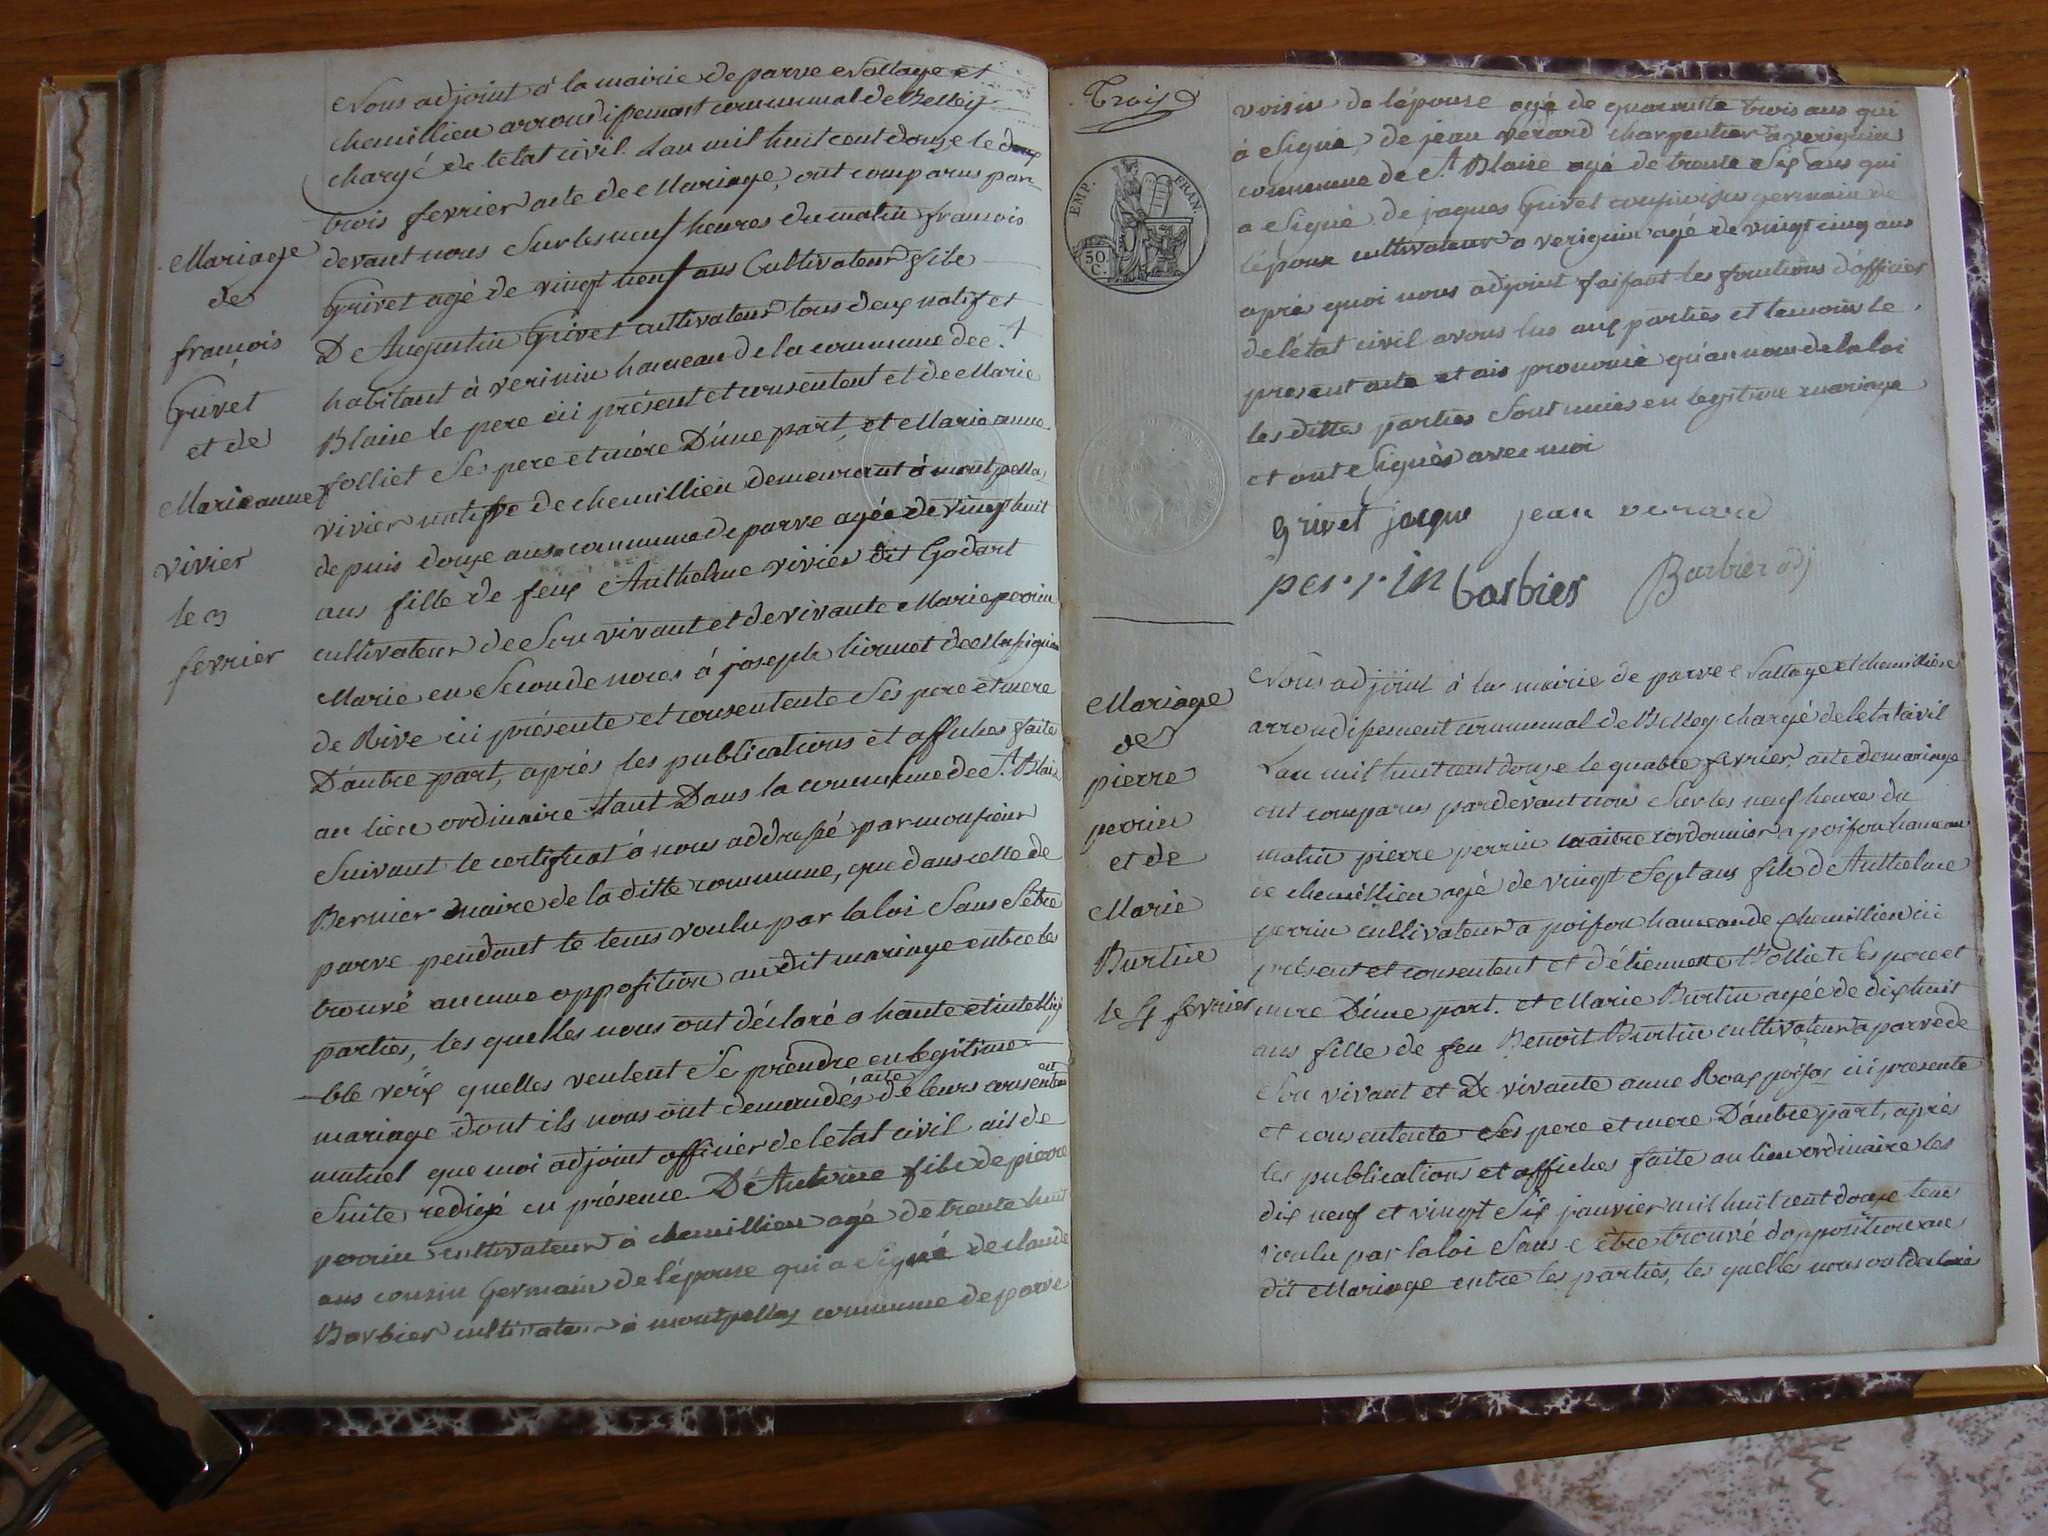 Nous adjoint à la mairie de parve e Nattage et
chemillieu arrondissement communal de Belley
chargé de letat civil. Lan mil huit cent douze le
trois fevrier acte de Mariage, ont comparus par
devant nous Sur les neuf heures du matin françois
Grivet agé de vingt neuf ans Cultivateur fils
D'Augustin Grivet cultivateur tous deux natif et
habitant à verinin hameau de la commune de St
Blaise le pere ici présent et consentent et de Marie
folliet Ses pere et mère D'une part, et Marie anne
vivier native de chemillieu demeurant à montpellaz
depuis douze ans commune de parve agée de vingt huit
ans fille de feux Anthelme vivier dit Godart
cultivateur de Son vivant et de vivante Marie perrin
Marie en Seconde noces à joseph
de Rive ici présente et consentente Ses pere et mere
D'autre part, après les publications et affiches faite
au lieu ordinaire tant Dans la commune de St Blaise
Suivant le certificat à nous addressé par monsieur
Bernier maire de la ditte commune, que dans celle de
parve pendant le tems voulu par la loi Sans S'être
trouvé aucune opposition audit mariage entre les
parties, les quelles nous ont déclaré a haute et intelligi
ble voix quelles veulent Se prendre en legitime
mariage dont ils nous ont demandés acte de leurs consentement
mutuel que moi adjoint officier de letat civil ais de
Suite redigé en présence D'Antoine fils de pierre
perrin cultivateur à chemillieu agé de trente huit
ans cousin Germain de l'épouse qui a Signé de claude
Barbier cultivateur à montpellaz commune de parve
Mariage
de
françois
Grivet
et de
Marie anne
vivier
le 3
fevrier
Trois
EMP. FRAN.
50
C.
voisin de lépouse agé de quarante trois ans qui
à Signé, de jean verard charpentier a verignin
commune de St Blaise agé de trente Six ans qui
a Signé de jaques Grivet cousin germain de
lépoux cultivateur a verignin agé de vingt cinq ans
après quoi nous adjoint faisant les fonctions d'officier
de létat civil avons lus aux parties et temoin le
present acte et ais prononcé qu'au nom de la loi
les dittes parties Sont unies en legitime mariage
et ont Signés avec moi
Grivet jaque jean verard
perrin barbier Barbier adj
Mariage
de
pierre
perrin
et de
Marie
Burtin
le 4 fevrier
Nous adjoint à la mairie de parve e Nattage et chemillieu
arrondissement communal de Belley chargé de letat civil
Lan mil huit cent douze le quatre fevrier, acte de mariage
ont comparus pardevant nous Sur les neuf heures du
matin pierre perrin maitre cordonnier a poisou hameau
de chemillieu agé de vingt Sept ans fils d'Anthelme
perrin cultivateur a poisou hameau de chemillieu ici
présent et consentent et d'étiennette folliet Ses pere et
mere D'une part. et Marie Burtin agée de dix huit
ans fille de feu Benoit Burtin cultivateur a parve de
Son vivant et De vivante anne Roux ici presente
et consentente Ses pere et mere D'autre part, après
les publications et affiches faite au lieu ordinaire les
dix neuf et vingt Six janvier mil huit cent douze tems
voulu par la loi Sans S'être trouvé d'opposition au
dit Mariage entre les parties, les quelles nous ont déclarés